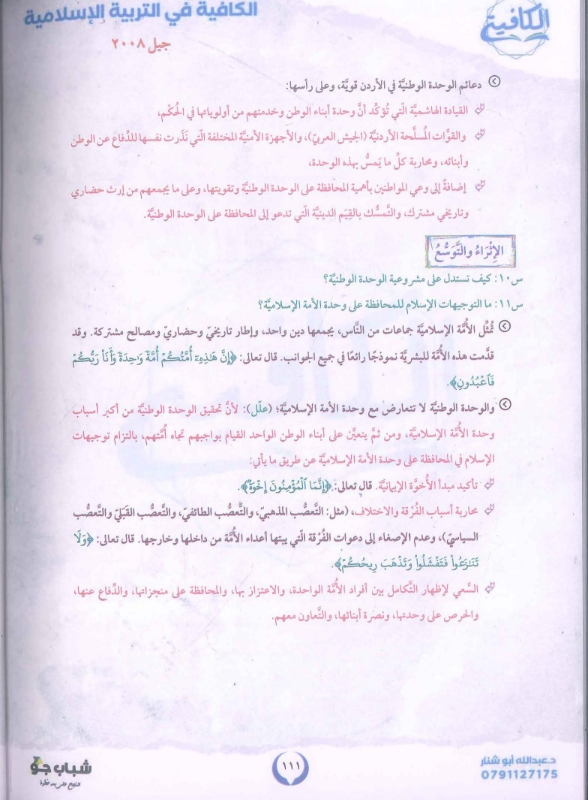 الكافية في التربية الإسلامية
جيل ٢٠٠٨
الكافية
دعائم الوحدة الوطنيَّة في الأردن قويَّة، وعلى رأسها:
القيادة الهاشميَّة الَّتي تُؤكِّد أنَّ وحدة أبناء الوطن وخدمتهم من أولوياتها في الحُكْم،
والقوَّات المُسلَّحة الأردنيَّة (الجيش العربيّ)، والأجهزة الأمنيَّة المختلفة الَّتي نَذَرت نفسها للدِّفاع عن الوطن
وأبنائه، ومحاربة كلِّ ما يَمسُّ بهذه الوحدة،
إضافةً إلى وعي المواطنين بأهمية المحافظة على الوحدة الوطنيَّة وتقويتها، وعلى ما يجمعهم من إرث حضاري
وتاريخي مشترك، والتَّمسُّك بالقِيَم الدينيَّة الَّتي تدعو إلى المحافظة على الوحدة الوطنيَّة.
الإثراءُ والتَّوسُّعُ
س١٠: كيف تستدل على مشروعية الوحدة الوطنيَّة؟
س١١: ما التوجيهات الإسلام للمحافظة على وحدة الأمة الإسلاميَّة؟
تُمثِّل الأُمَّة الإسلاميَّة جماعات من النَّاس، يجمعها دين واحد، وإطار تاريخيّ وحضاريّ ومصالح مشتركة. وقد
قدَّمت هذه الأُمَّة للبشريَّة نموذجًا رائعًا في جميع الجوانب. قال تعالى: ﴿إِنَّ هَٰذِهِۦٓ أُمَّتُكُمْ أُمَّةً وَٰحِدَةً وَأَنَا۠ رَبُّكُمْ
فَٱعْبُدُونِ﴾.
والوحدة الوطنيَّة لا تتعارض مع وحدة الأمة الإسلاميَّة؛ (علّل): لأنَّ تحقيق الوحدة الوطنيَّة من أكبر أسباب
وحدة الأُمَّة الإسلاميَّة، ومن ثمَّ يتعيَّن على أبناء الوطن الواحد القيام بواجبهم تجاه أُمَّتهم، بالتزام توجيهات
الإسلام في المحافظة على وحدة الأمة الإسلاميَّة عن طريق ما يأتي:
تأكيد مبدأ الأُخوَّة الإيمانيَّة. قال تعالى: ﴿إِنَّمَا ٱلْمُؤْمِنُونَ إِخْوَةٌ﴾.
محاربة أسباب الفُرْقة والاختلاف، (مثل: التَّعصُّب المذهبيّ، والتَّعصُّب الطائفيّ، والتَّعصُّب القَبَليّ والتَّعصُّب
السياسيّ)، وعدم الإصغاء إلى دعوات الفُرْقة الَّتي يبثها أعداء الأُمَّة من داخلها وخارجها. قال تعالى: ﴿وَلَا
تَنَٰزَعُوا۟ فَتَفْشَلُوا۟ وَتَذْهَبَ رِيحُكُمْ﴾.
السَّعي لإظهار التَّكامل بين أفراد الأُمَّة الواحدة، والاعتزاز بها، والمحافظة على منجزاتها، والدِّفاع عنها،
والحرص على وحدتها، ونصرة أبنائها، والتَّعاون معهم.
د.عبدالله أبو شنار
0791127175
١١١
شباب جو